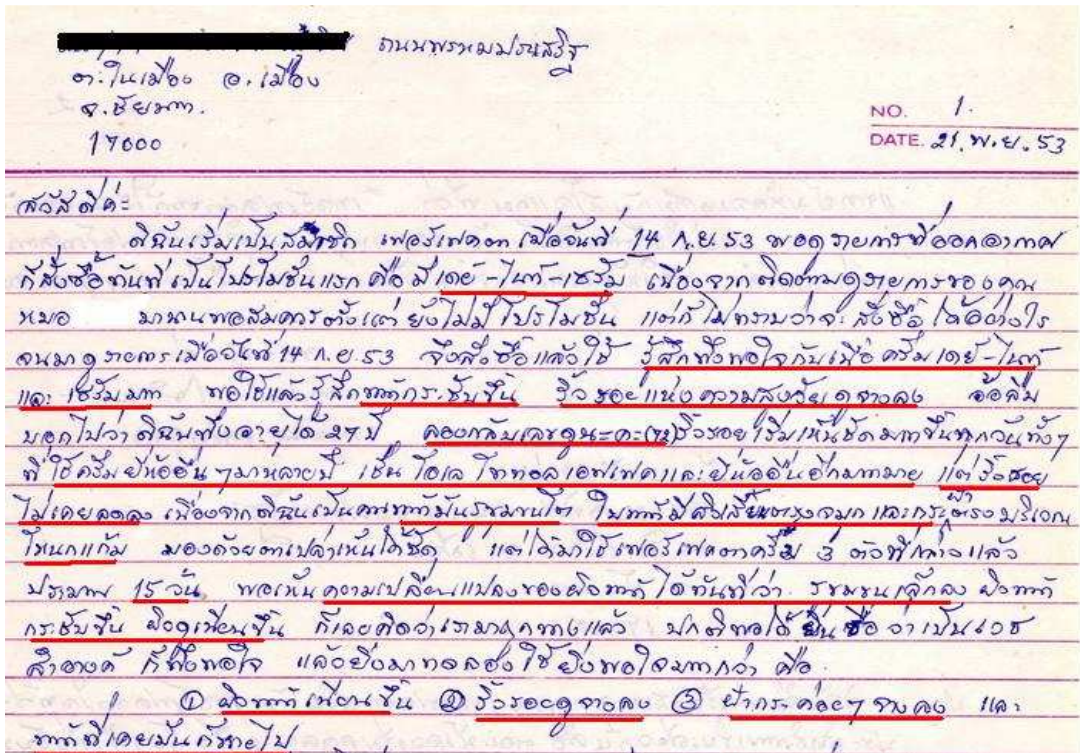 ถนนพรหมประเสริฐ
ต.ในเมือง อ.เมือง
จ.ชัยนาท.
17000
NO. 1.
DATE. 21. พ.ย. 53
สวัสดีค่ะ
ดิฉันเริ่มเป็นสมาชิก เฟอร์เฟคตา เมื่อวันที่ 14 ก.ย. 53 พอดูรายการที่ออกอากาศ
ก็สั่งซื้อทันที เป็นโปรโมชั่นแรก คือ มีเดย์-ไนท์-เซรั่ม เนื่องจากติดตามดูรายการของคุณ
หมอ มานานพอสมควรตั้งแต่ ยังไม่มีโปรโมชั่น แต่ก็ไม่ทราบว่าจะสั่งซื้อได้อย่างไร
จนมาดูรายการเมื่อวันที่ 14 ก.ย. 53 จึงสั่งซื้อแล้วใช้ รู้สึกพึงพอใจกับเนื้อครีมเดย์-ไนท์
และ เซรั่มมาก พอใช้แล้วรู้สึกหน้ากระชับขึ้น ริ้วรอยแห่งความสูงวัยดูจางลง อ้อลืม
บอกไปว่าดิฉันพึ่งอายุได้ 27 ปี ลองกลับเลขดูนะคะ(72)ริ้วรอยเริ่มเห็นชัดมากขึ้นทุกวันทั้งๆ
ที่ใช้ครีมยี่ห้ออื่นๆมาหลายปี เช่น โอเล โททอลเอฟเฟคและยี่ห้ออื่นอีกมากมาย แต่ริ้วรอย
ไม่เคยลดลง เนื่องจากดิฉันเป็นคนหน้ามันรูขุมขนโต ใบหน้ามีสิวเสี้ยนตรงจมูก และกระฝ้าตรงบริเวณ
โหนกแก้ม มองด้วยตาเปล่าเห็นได้ชัด แต่ได้มาใช้เฟอร์เฟคตาครีม 3 ตัวที่กล่าวแล้ว
ประมาณ 15 วัน พอเห็นความเปลี่ยนแปลงของผิวหน้าได้ทันทีว่า รูขุมขนเล็กลง ผิวหน้า
กระชับขึ้น ผิวดูเนียนขึ้น ก็เลยคิดว่าเรามาถูกทางแล้ว ปกติพอได้ยินชื่อ ว่าเป็นเวช
สำอางค์ ก็พึงพอใจ แล้วยิ่งมาทดลองใช้ ยิ่งพอใจมากกว่า คือ.
① ผิวหน้าเนียนขึ้น ② ริ้วรอยดูจางลง ③ ฝ้ากระค่อยๆจางลง และ
หน้าที่เคยมันก็หายไป